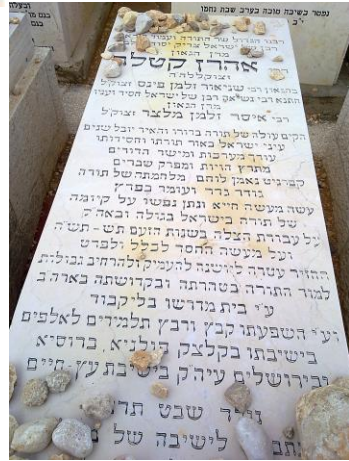 נפטר בשיבה טובה בערב שבת נחמו
מרן הגאון
אהרן קטלר
זצוקללה"ה
בהגאון רבי שניאור זלמן פינס זצוקל
מרן הגאון
רבי איסר זלמן מלצר זצוקל
הקים עולה של תורה בדורו והאיר יובל שנים
עיני ישראל באור תורתו וחסידותו
עוקר מערכות ומישר הדורים
מתרץ הויות ומפרק שברים
קברניט נאמן לוחם מלחמתה של תורה
גודר גדר ועומד בפרץ
עשה מעשה חייא ונתן נפשו על קיומה
של תורה בישראל בגולה ובאה"ק
על עבודת הצלה בשנות הזעם תש-תש"ה
ועל מעשה החסד לכלל ולפרט
החזיר עטרה ליושנה להעמיק ולהרחיב גבולות
למוד התורה בטהרתה ובקדושתה בארה"ב
ע"י בית מדרשו בליקבוד
וע"י השפעתו קבץ ורבץ תלמידים לאלפים
בישיבתו בקלצק פולניא ברוסיא
ובירושלים עיה"ק בישיבת עץ חיים
שבט
לישיבה של